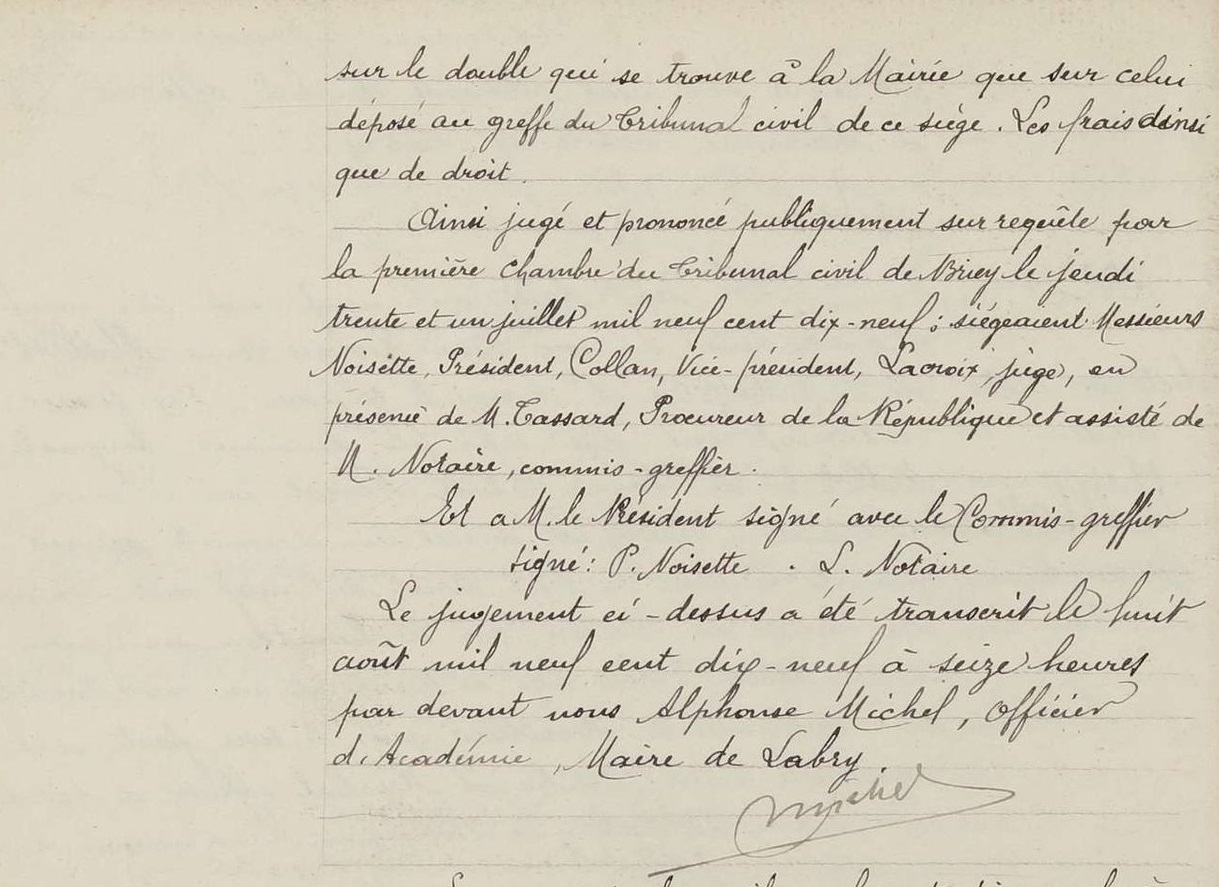 sur le double qui se trouve à la Mairie que sur celui
déposé au greffe du Tribunal civil de ce siège. Les frais ainsi
que de droit.
Ainsi jugé et prononcé publiquement sur requête par
la première chambre du Tribunal civil de Briey le jeudi
trente et un juillet mil neuf cent dix-neuf ; siégeaient Messieurs
Noisette, Président, Collan, Vice-président, Lacroix, juge, en
présence de M. Tassard, Procureur de la République et assisté de
M. Notaire, commis-greffier.
Et a M. le Président signé avec le Commis-greffier
signé : P. Noisette . L. Notaire
Le jugement ci-dessus a été transcrit le huit
août mil neuf cent dix-neuf à seize heures
par devant nous Alphonse Michel, Officier
d'Académie, Maire de Labry.
Michel